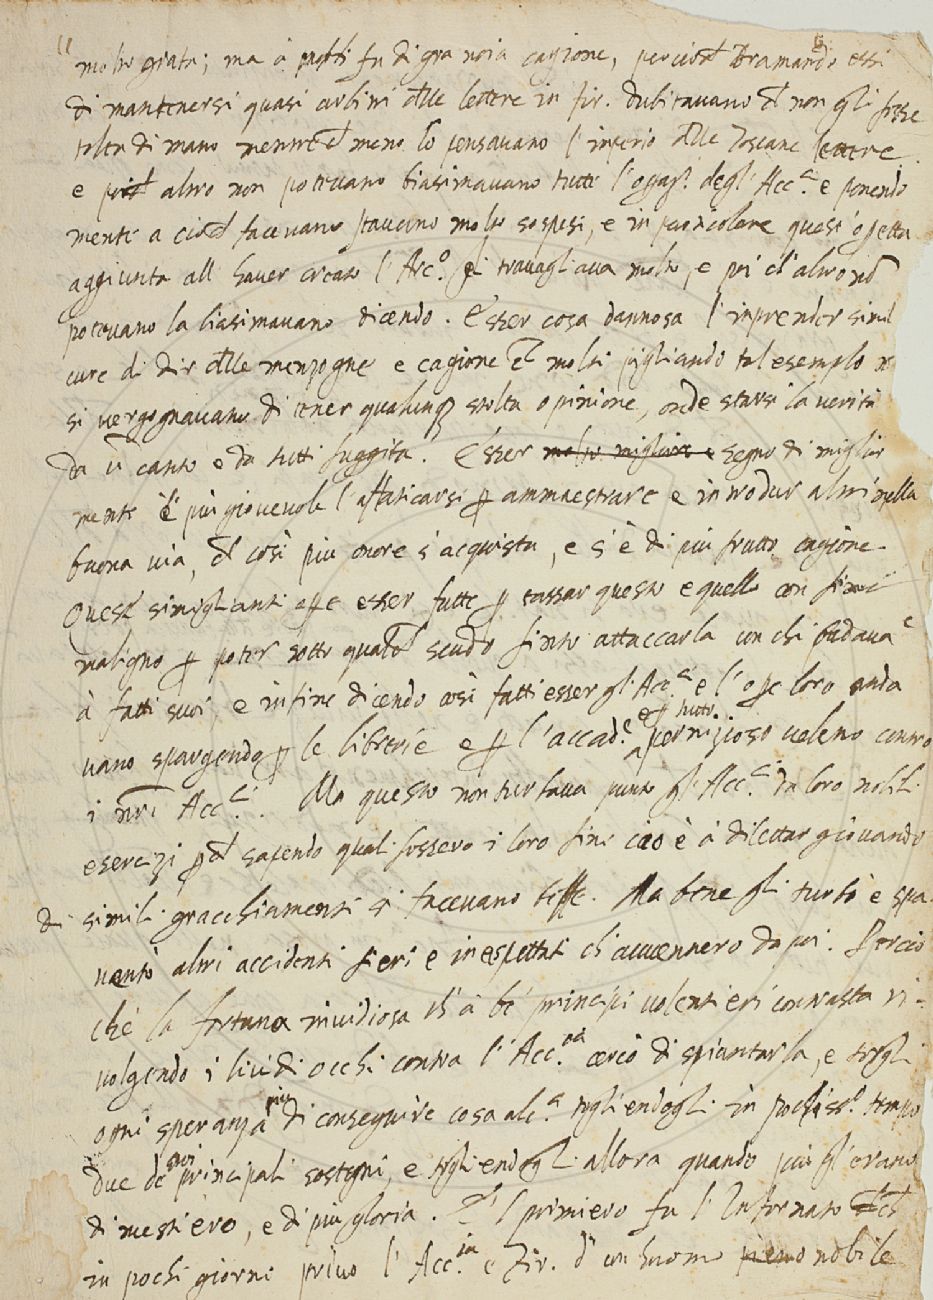 molto grata; ma à molti fu di gra noia cagione, perciochè bramando essi
di mantenersi quasi arbitri delle lettere in fir. dubitavano che non gli fosse
tolto di mano mentre che meno lo pensavano l'imperio delle Toscane lettere.
e poiche altro non potevano biasimavano tutte l'            degl'Acc.ci e ponendo
mente a ciò che facevano stavano molto sospesi, e in particolare quest'opetta
aggiunta all haver creato l'Arc.o gli travagliava molto, e poi ch'altro nō
potevano la biasimavano dicendo. Esser cosa dannosa l'inprender simil
cure di dir delle menzogne e cagione che molti pigliando tal esemplo nō
si vergognavano di tener qualunq stolta opinione, onde starsi la verità
da ū canto e da tutti fuggita. Esser molto migliore e segno di miglior
mente è più giovevole l'affaticarsi p ammaestrare e introdur altri nella
buona via, che così più onore s'acquista, e s'è di più frutto cagione.
Quest simiglianti ope esser fatte p tassar questo e quello con fine
maligno p poter sotto                scudo finto attaccarla con chi badava
à fatti suoi, e infine dicendo così fatti esser gl'Acc.ci e l'ope loro anda
vano spargendo p le librerie e p l'accad.e e p tutto pernizioso veleno contro
i nri Acc.ci. Ma questo non turbava punto gl'Acc.ci da loro nobili
esercizi p che sapendo quali fossero i loro fini cioè à dilettar giovando
di simili gracchiamenti si facevano beffe. Ma bene gli turbò e spa
ventò altri accidenti fieri e inespettati ch'avvennero da poi. Percio
chè la fortuna invidiosa ch'à be' principi volentieri contrasta ri-
volgendo i lividi occhi contra l'Acc.ia cercò di spiantarla, e torgli
ogni speranza più di conseguire cosa alc.a togliendogli in pochiss.o tempo
due de suoi principali sostegni, e togliendogli allora quando più gl'erano
di mestiero, e di più gloria. E'l primiero fu l'Infornato che
in pochi giorni privo l'Acc.ia e Fir. d'un huomo pieno nobile